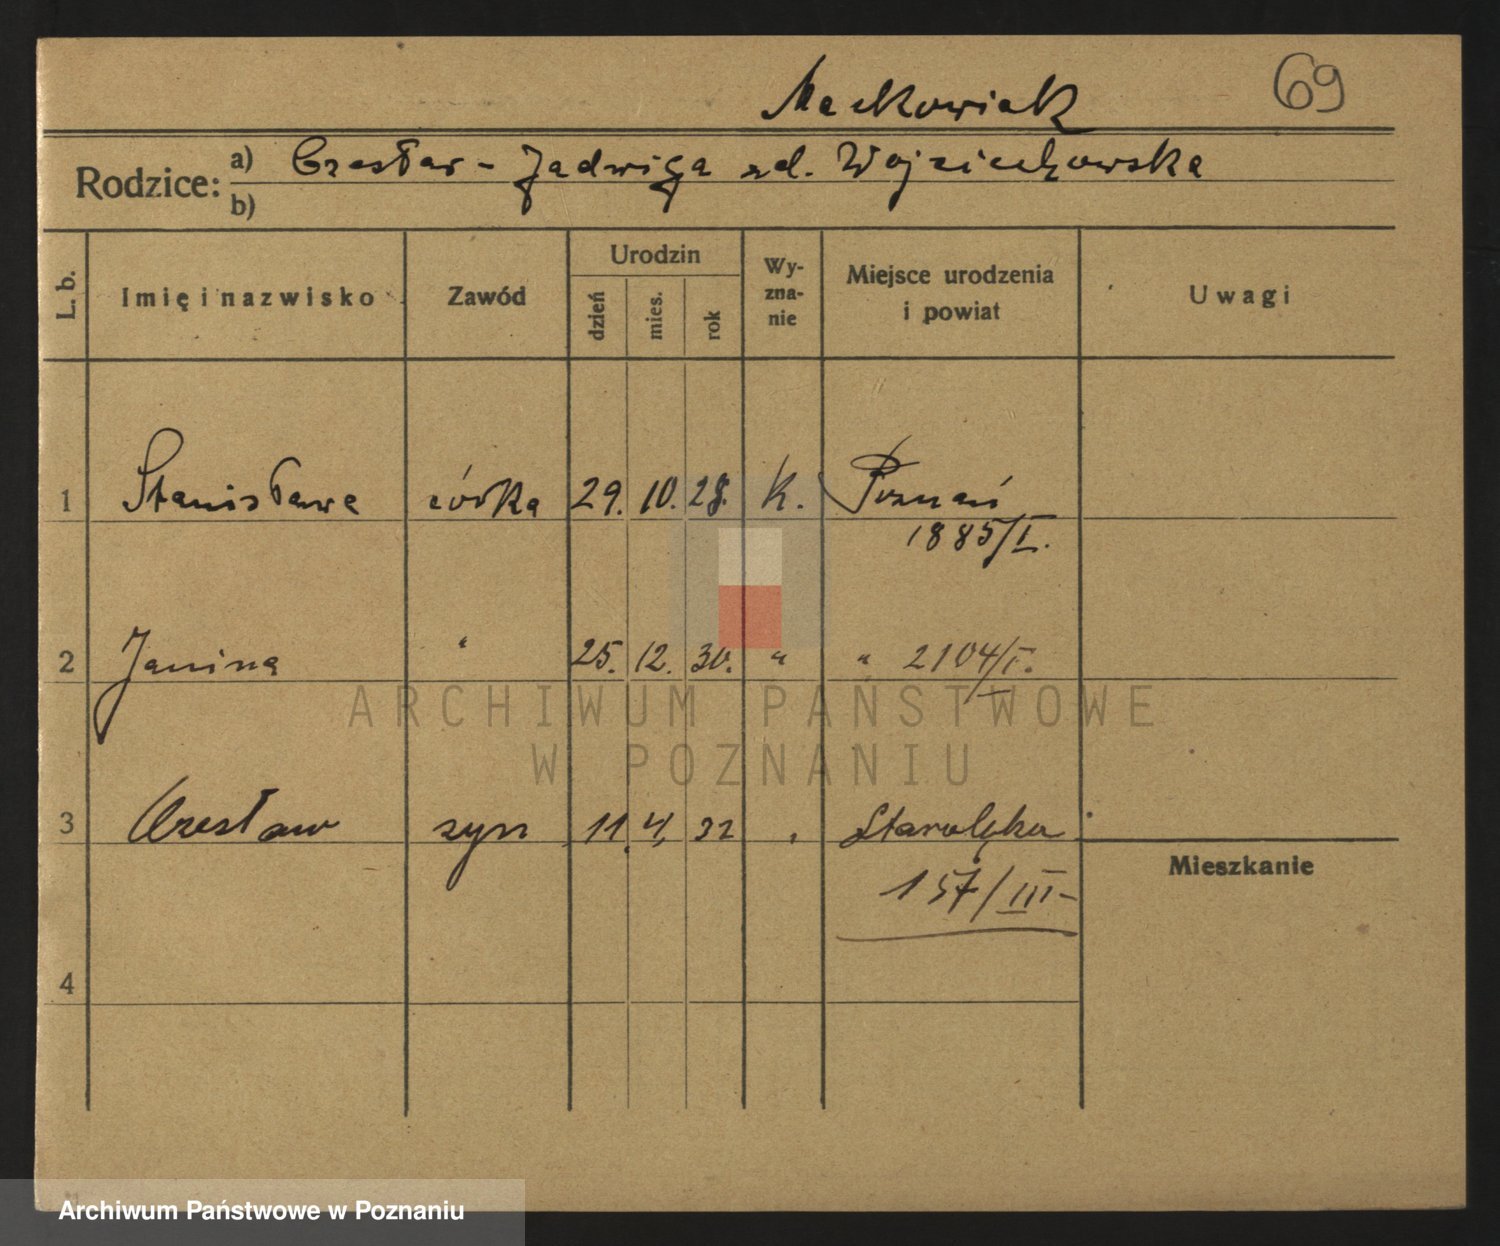 Maćkowiak 69
Rodzice: a) Czesław - Jadwiga zd. Wojciechowska
b)
L. b. Imię i nazwisko Zawód Urodzin dzień mies. rok Wyzna-nie Miejsce urodzenia i powiat Uwagi
1 Stanisława córka 29. 10. 28. K. Poznań
1885/I.
2 Janina " 25. 12. 30. " " 2104/I.
ARCHIWUM PAŃSTWOWE
W POZNANIU
3 Czesław syn 11. 4. 32 " Starołęka
Mieszkanie
157/III-
4
Archiwum Państwowe w Poznaniu